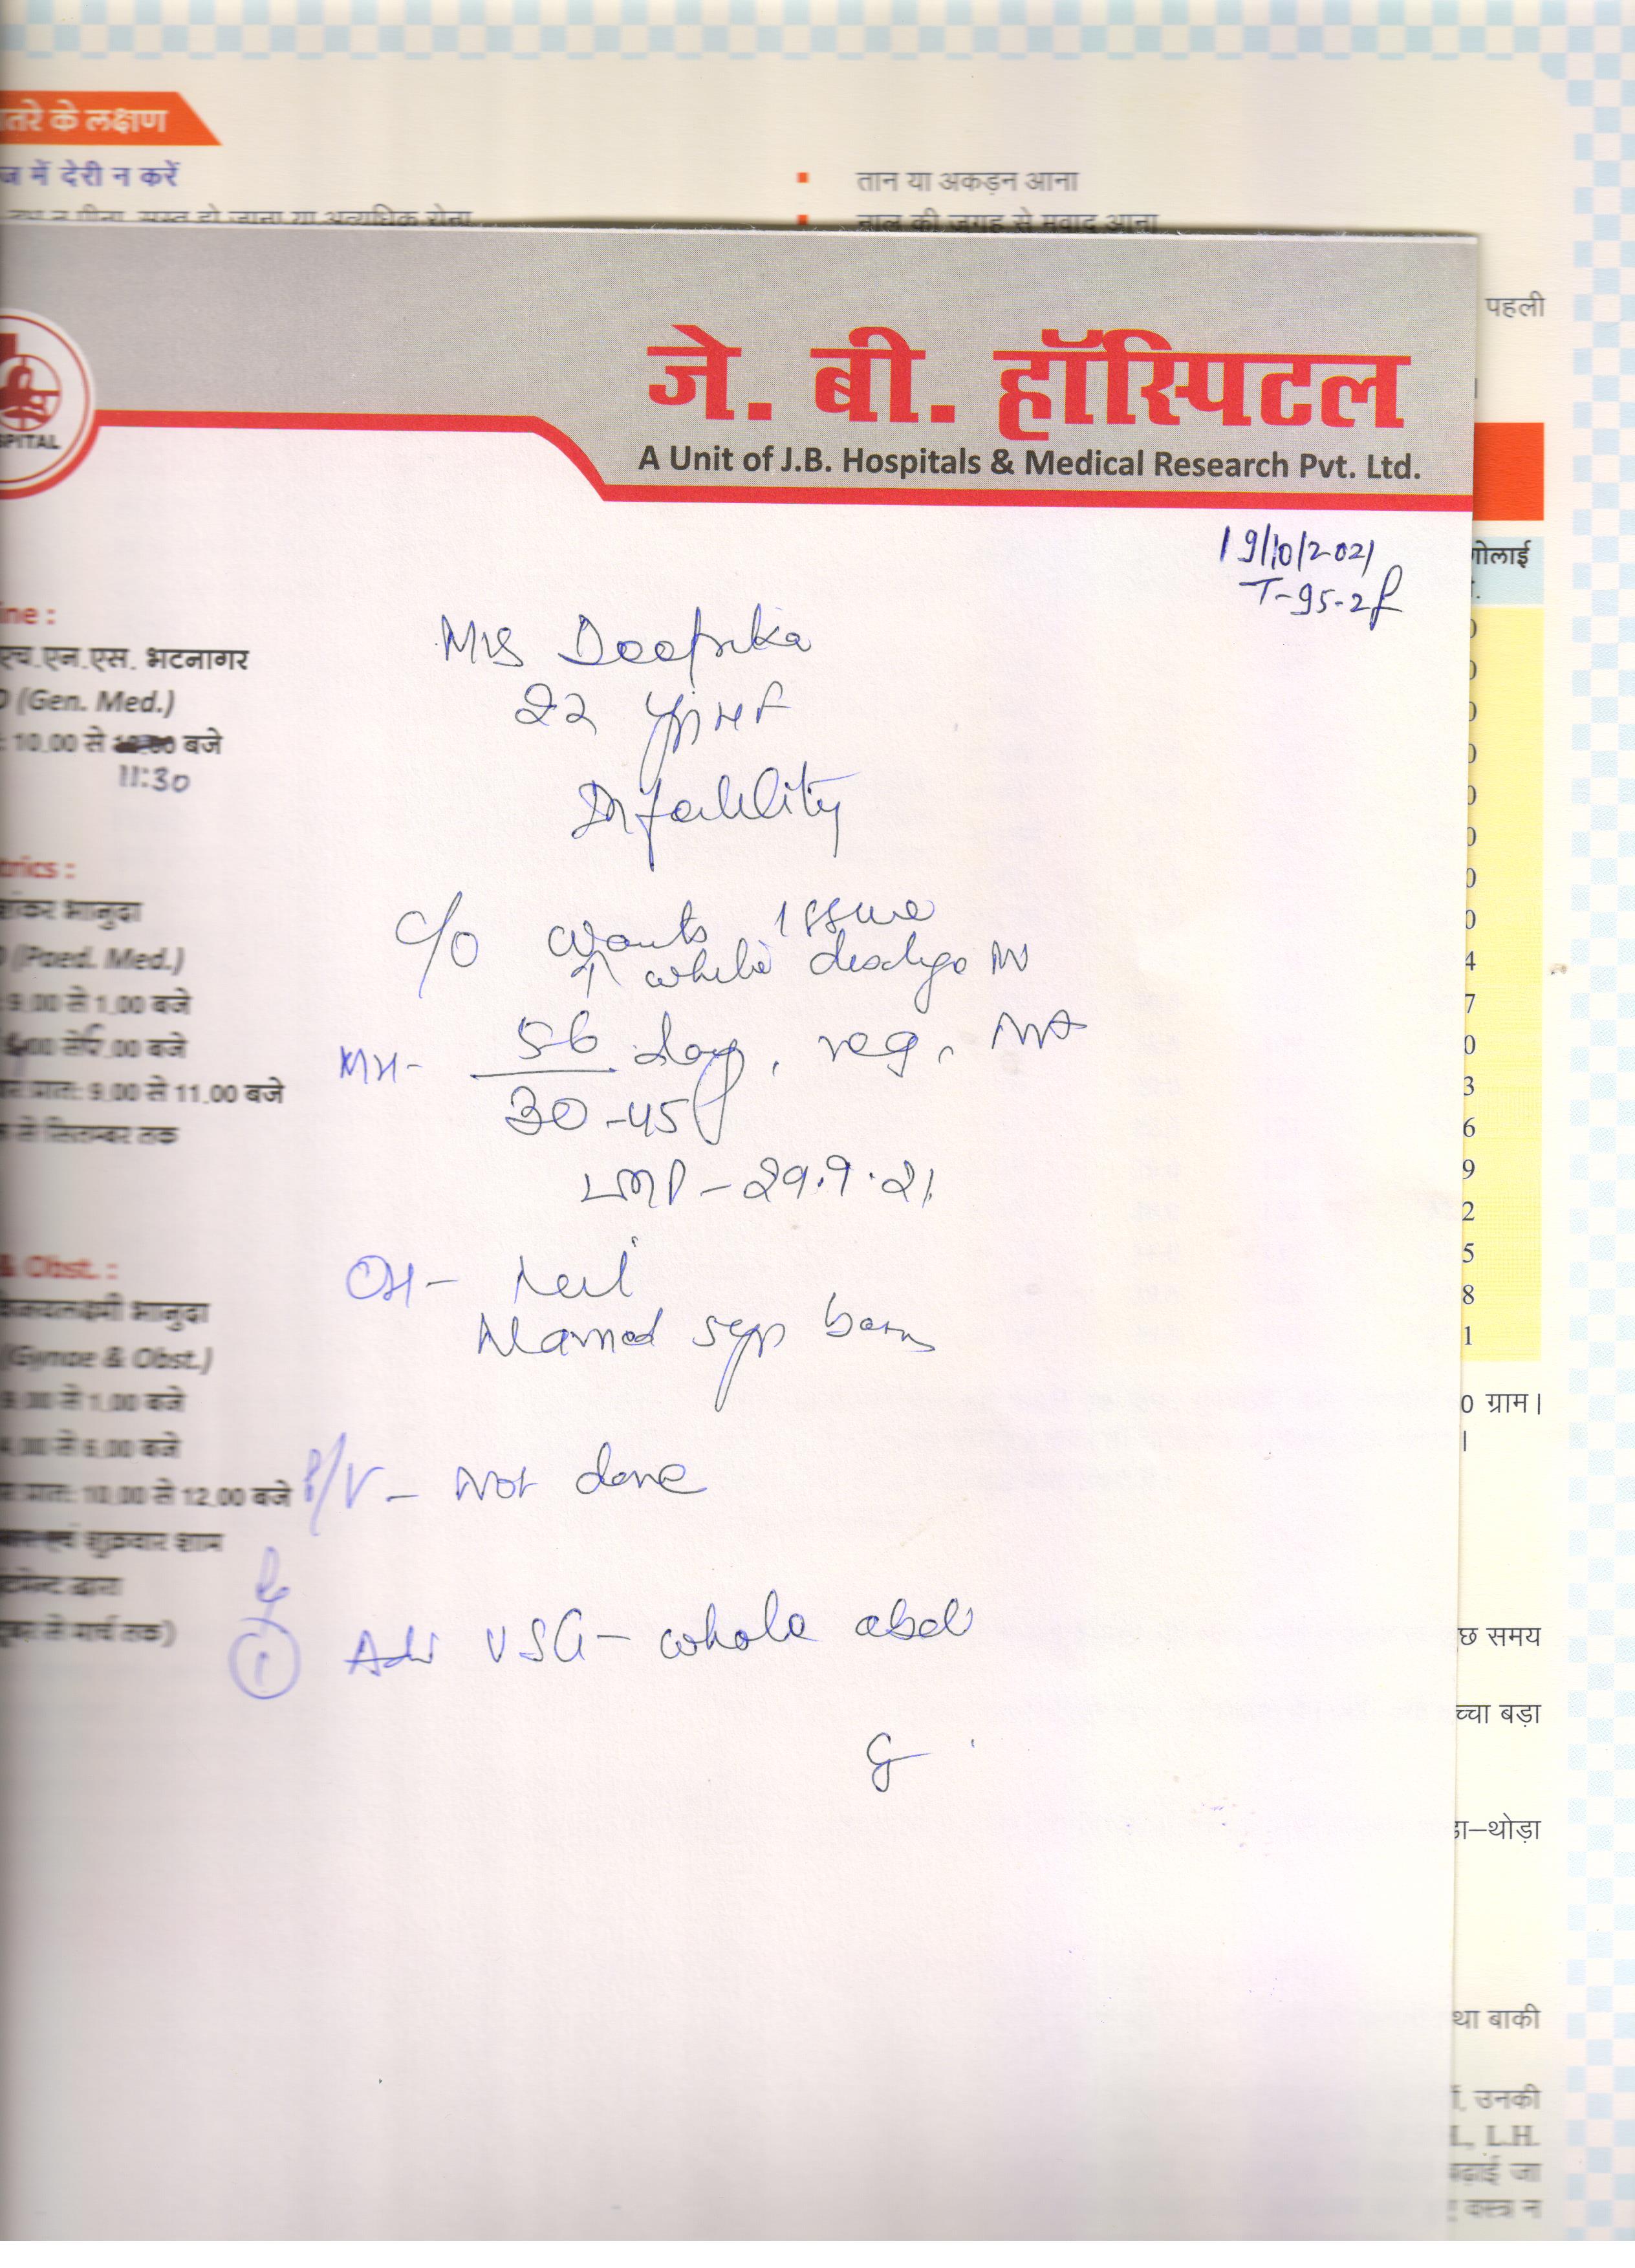 तरे के लक्षण
ज में देरी न करें
तान या अकड़न आना
दूध न पीना, सुस्त हो जाना या अत्यधिक रोना
नाल की जगह से मवाद आना
पहली
जे. बी. हॉस्पिटल
SPITAL
A Unit of J.B. Hospitals & Medical Research Pvt. Ltd.
19/10/2021
T-95-2f
गोलाई
ine :
एच.एन.एस. भटनागर
D (Gen. Med.)
: 10.00 से बजे
11:30
Mrs Deepika
22 yr
Infertility
trics :
शंकर भानुदा
D (Paed. Med.)
9.00 से 1.00 बजे
.00 बजे
प्रात: 9.00 से 11.00 बजे
से सितम्बर तक
C/O wants issue
↑ white
MH- 5-6 days, reg,
30-45
LMP - 29.9.21
& Obst. :
भानुदा
(Gynae & Obst.)
9.00 से 1.00 बजे
4.00 से 6.00 बजे
प्रात: 10.00 से 12.00 बजे
एवं शुक्रवार शाम
द्वारा
से मार्च तक)
OH - Nil
Married
P/V - Not done
1 Adv USG - whole abd
0
0
0
0
0
0
0
0
4
7
0
3
6
9
2
5
8
1
0 ग्राम।
।
छ समय
च्चा बड़ा
डा–थोड़ा
था बाकी
उनकी
L.H.
बढ़ाई जा
वस्त्र न